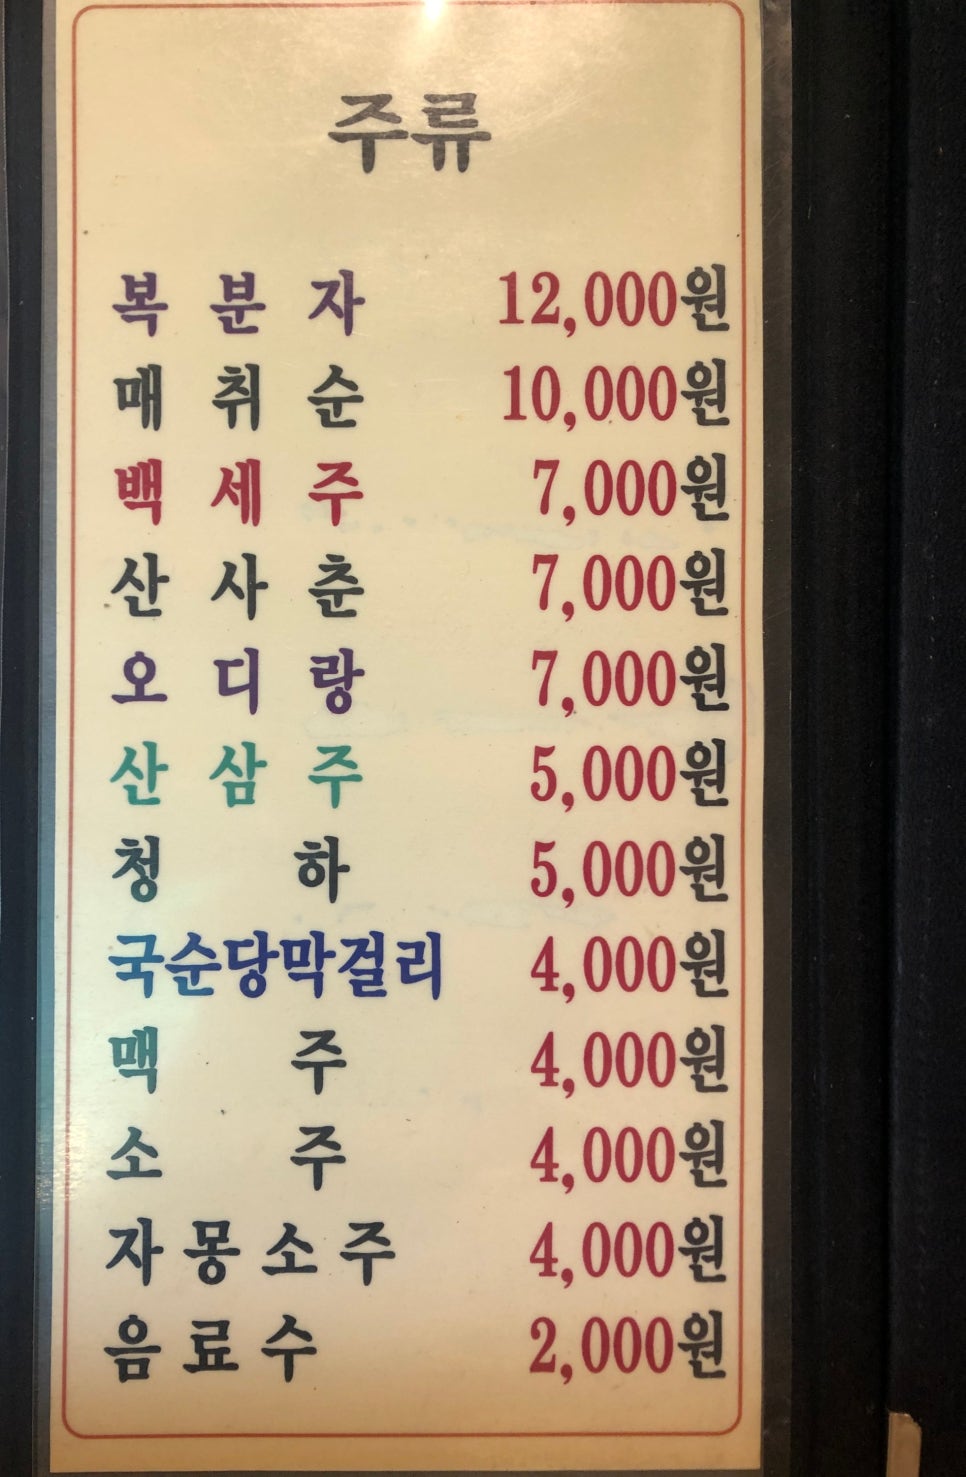 주류
복분자 12,000원
매취순 10,000원
백세주 7,000원
산사춘 7,000원
오디랑 7,000원
산삼주 5,000원
청하 5,000원
국순당막걸리 4,000원
맥주 4,000원
소주 4,000원
자몽소주 4,000원
음료수 2,000원